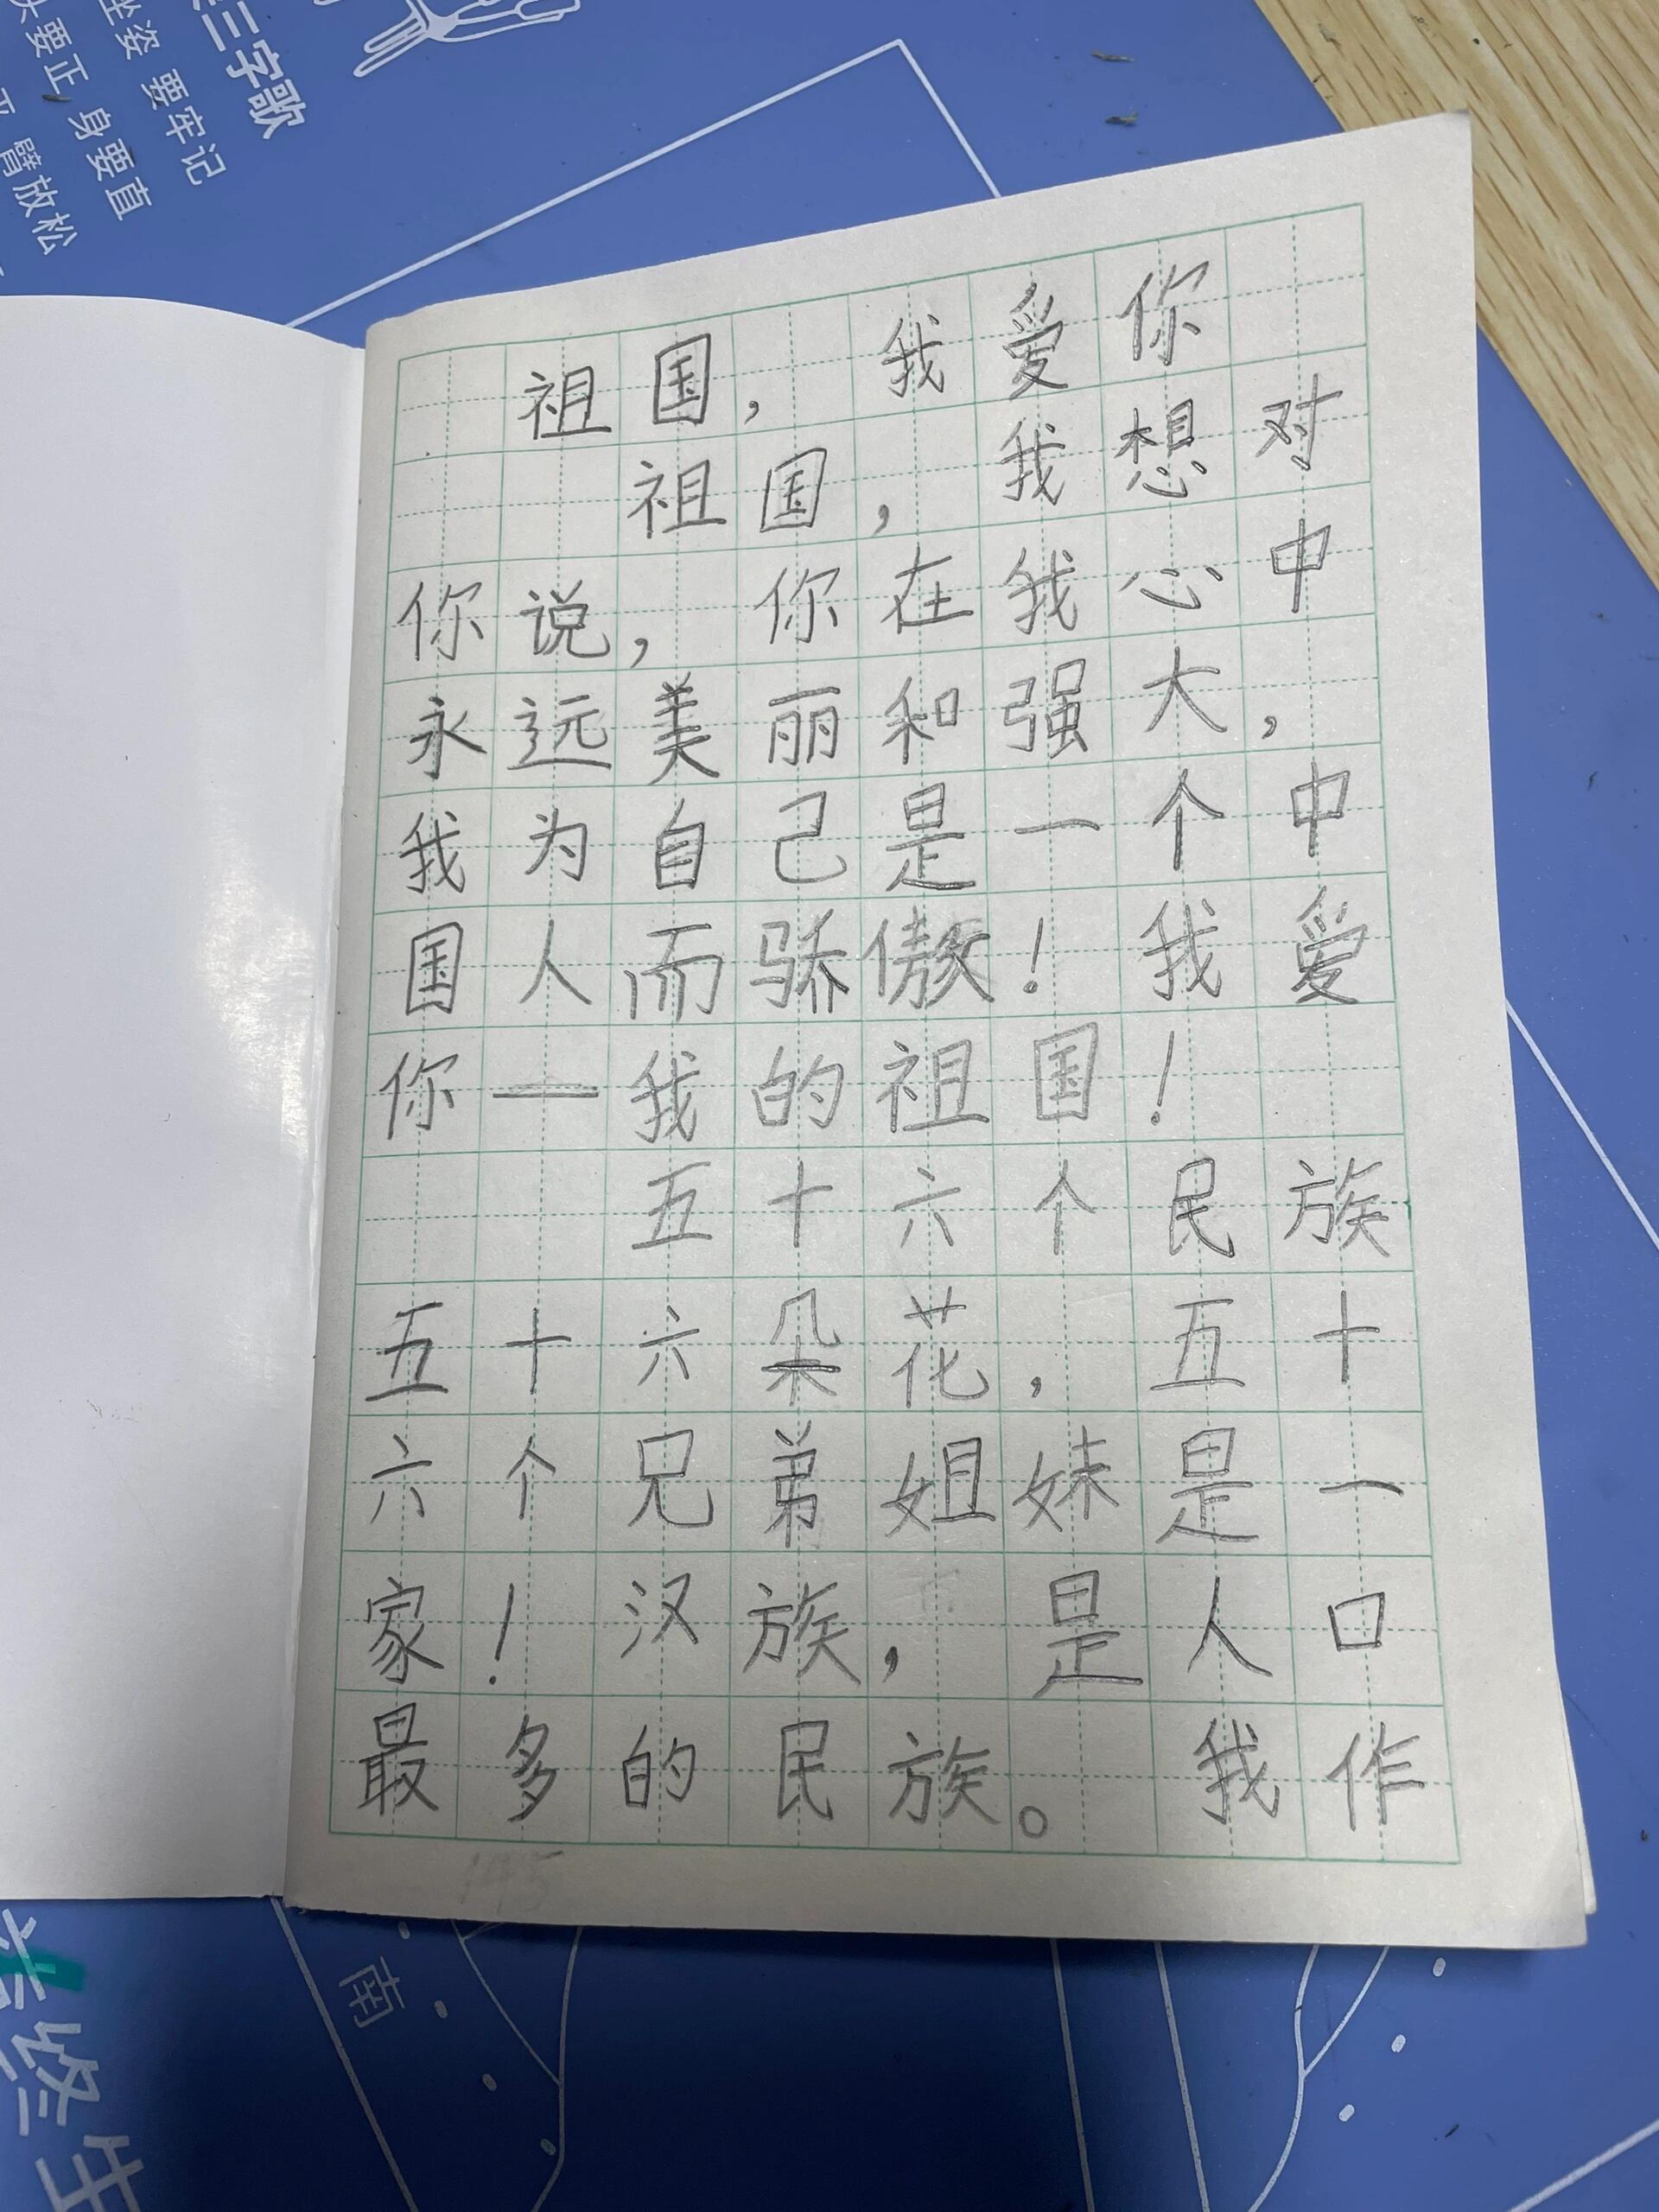 三字歌
坐姿 要牢记
头要正 身要直
臂放松
祖国，我爱你
祖国，我想对
你说，你在我心中
永远美丽和强大，
我为自己是一个中
国人而骄傲！我爱
你—我的祖国！
五十六个民族
五十六朵花，五十
六个兄弟姐妹是一
家！汉族，是人口
最多的民族。我作
195
南
终生